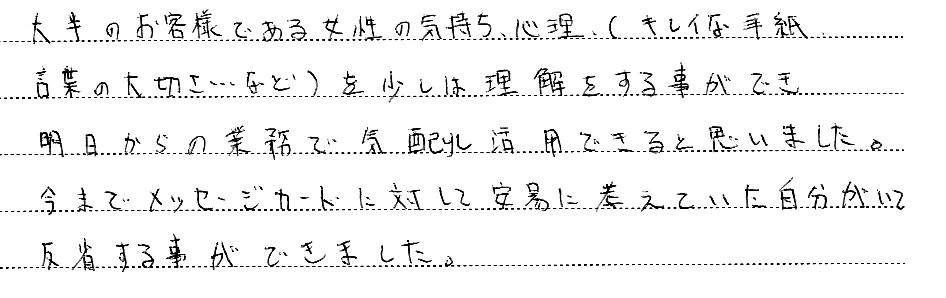 大半のお客様である女性の気持ち、心理、(キレイな手紙
言葉の大切さ…など)を少しは理解をする事ができ
明日からの業務で気配り活用できると思いました。
今までメッセージカードに対して安易に考えていた自分がいて
反省する事ができました。